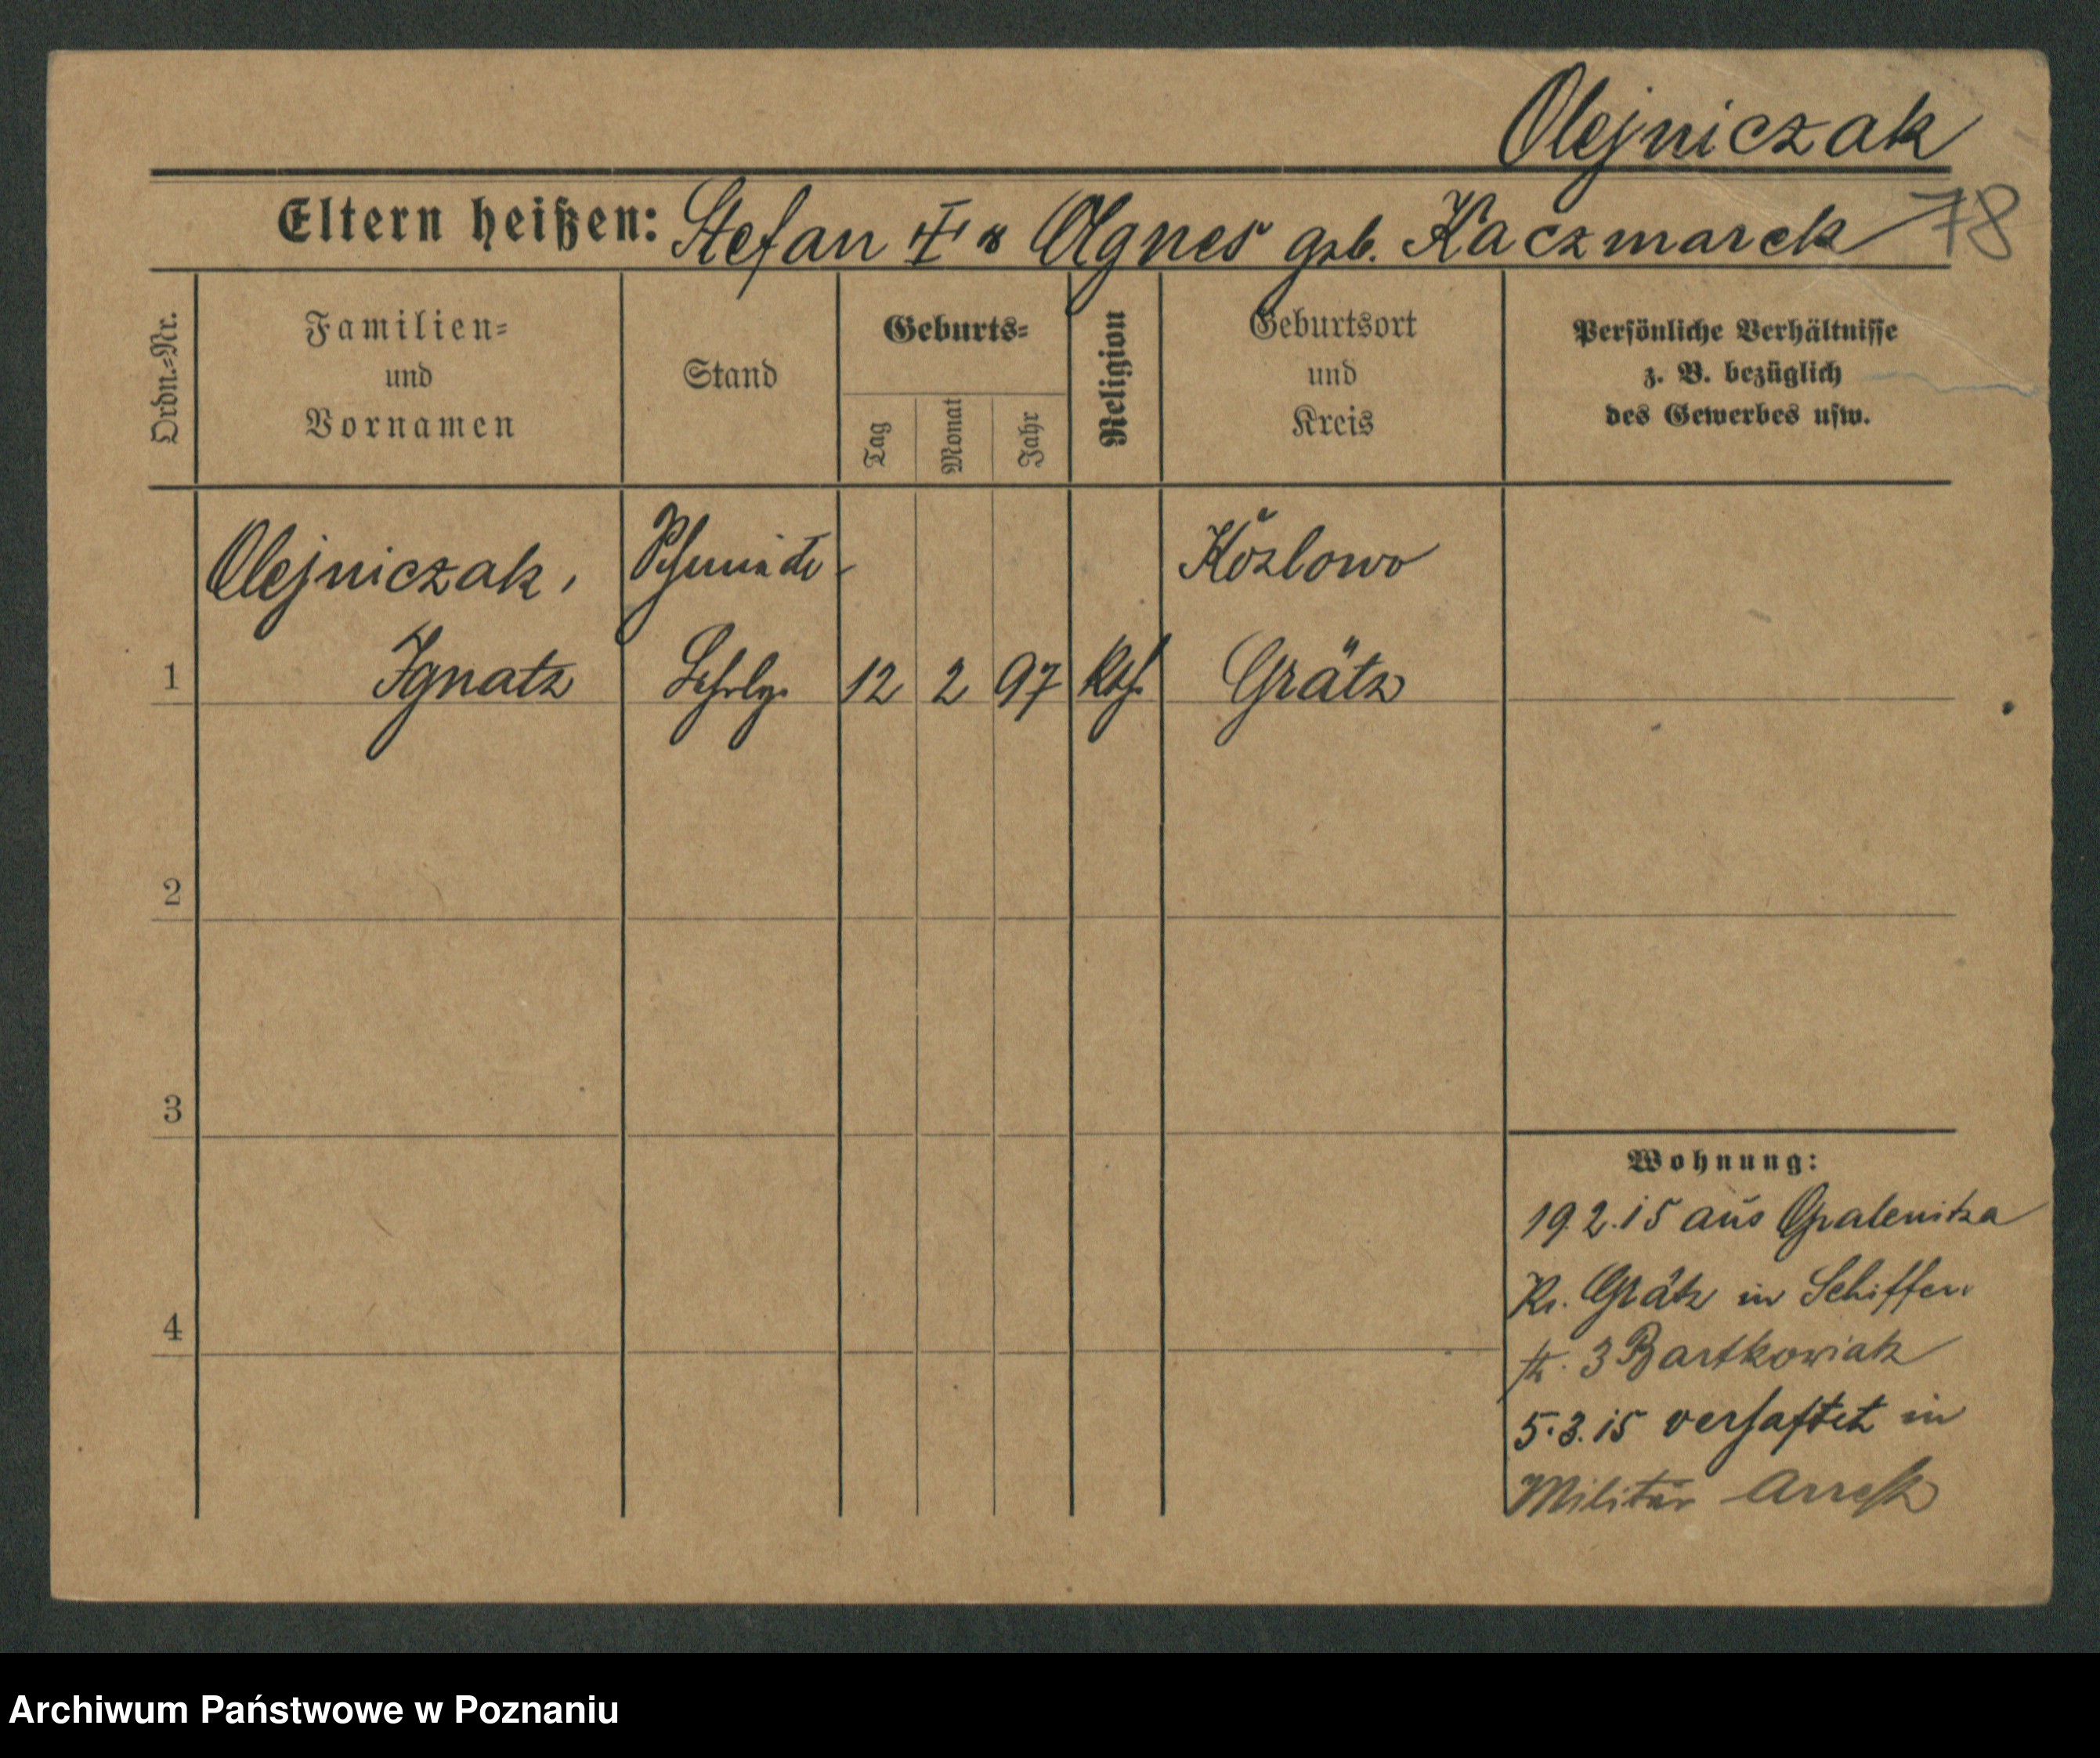 Olejniczak
Eltern heißen: Stefan † u Agnes geb. Kaczmarek 78
Ordn.=Nr.
Familien=
und
Vornamen
Stand
Geburts=
Tag
Monat
Jahr
Religion
Geburtsort
und
Kreis
Persönliche Verhältnisse
z. B. bezüglich
des Gewerbes usw.
Olejniczak, Schmiede- Kozlowo
1 Ignatz Lehrlg. 12 2 97 Kth. Grätz
2
3
4
Wohnung:
19.2.15 aus Opalenitza
Kr. Grätz in Schiffer
str. 3 Bartkowiak
5.3.15 verhaftet in
Militär Arrest
Archiwum Państwowe w Poznaniu